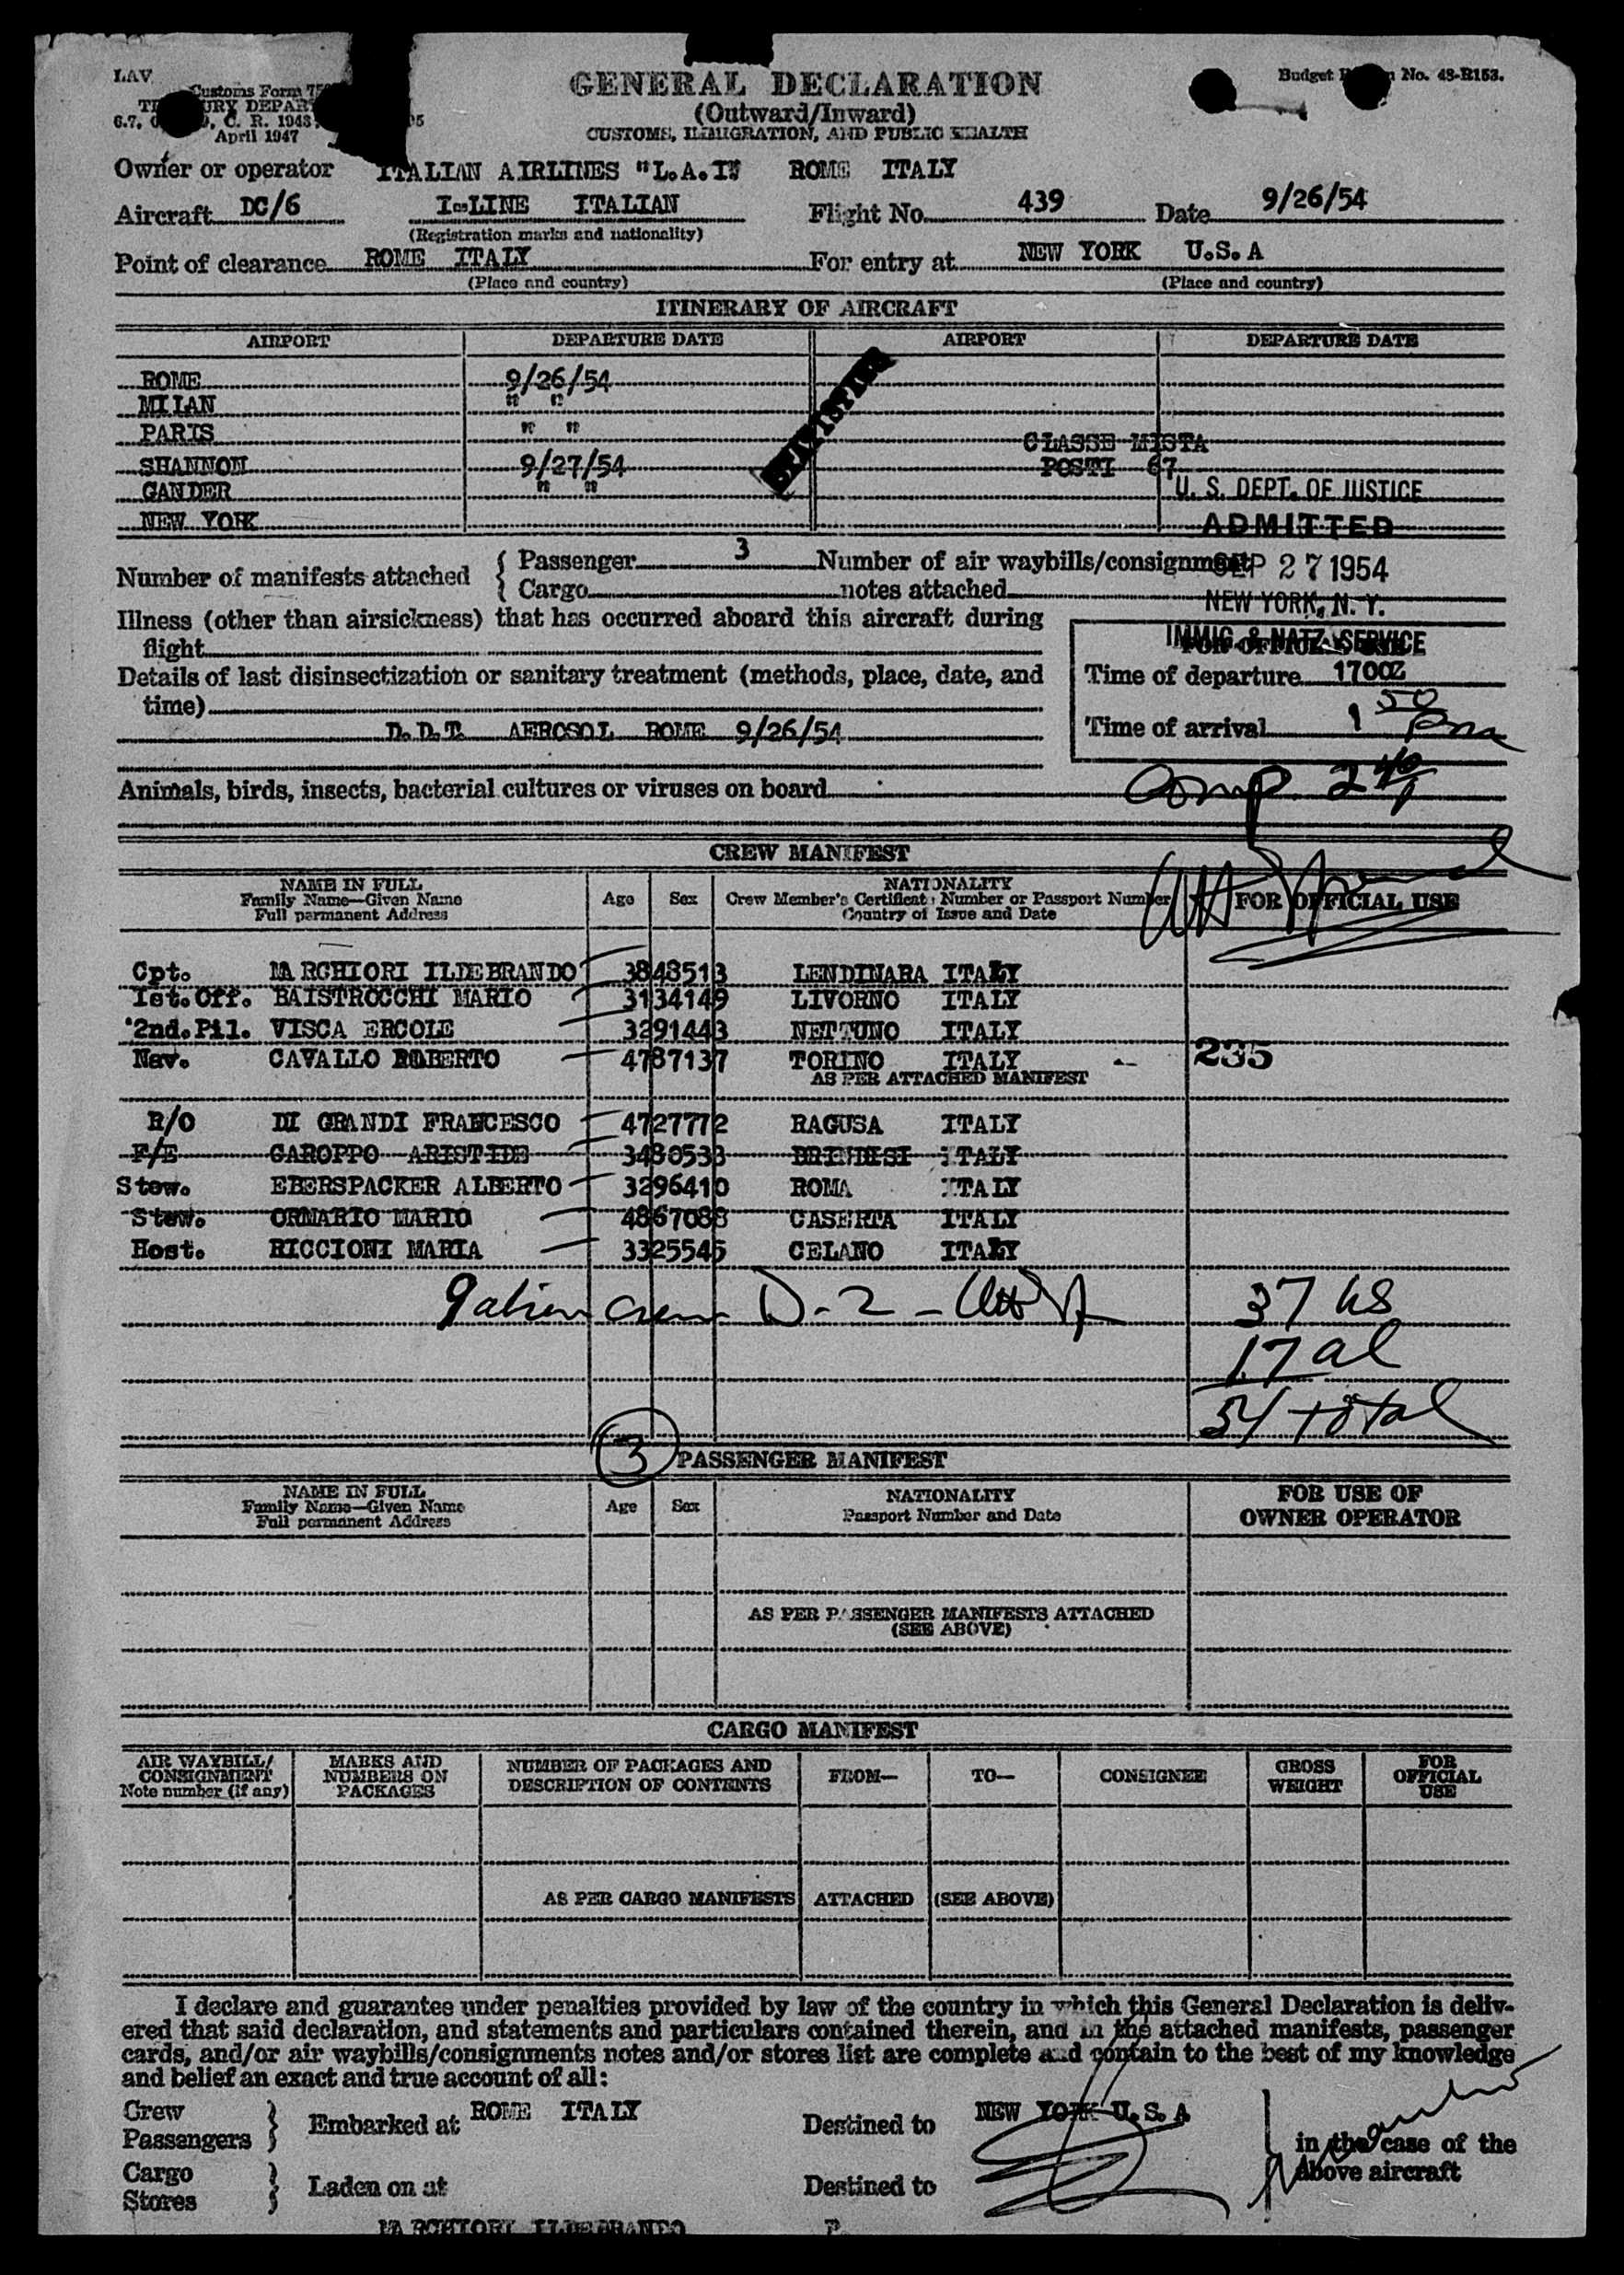 LAV
Customs Form 75
URY DEPAR
6.7, C. R. 1943
April 1947
Budget No. 48-R153.
GENERAL DECLARATION
(Outward/Inward)
CUSTOMS, IMMIGRATION, AND PUBLIC HEALTH
Owner or operator ITALIAN AIRLINES "L.A.I" ROME ITALY
Aircraft DC/6 I-LINE ITALIAN Flight No. 439 Date 9/26/54
(Registration marks and nationality)
Point of clearance ROME ITALY For entry at NEW YORK U.S.A
(Place and country) (Place and country)
ITINERARY OF AIRCRAFT
AIRPORT DEPARTURE DATE AIRPORT DEPARTURE DATE
ROME 9/26/54
MILAN " "
PARIS " "
CLASSE MISTA
SHANNON 9/27/54 POSTI 67
GANDER " " U. S. DEPT. OF JUSTICE
NEW YORK ADMITTED
STATISTICS
Number of manifests attached { Passenger 3 Number of air waybills/consignment SEP 27 1954
Cargo notes attached
NEW YORK, N. Y.
Illness (other than airsickness) that has occurred aboard this aircraft during
flight
IMMIG. & NATZ. SERVICE
FOR OFFICIAL USE
Details of last disinsectization or sanitary treatment (methods, place, date, and
time)
Time of departure 1700Z
D.D.T. AEROSOL ROME 9/26/54
Time of arrival 1 50 pm
Animals, birds, insects, bacterial cultures or viruses on board
Comp 2 40
CREW MANIFEST
NAME IN FULL
Family Name—Given Name
Full permanent Address
Age Sex
NATIONALITY
Crew Member's Certificate Number or Passport Number
Country of Issue and Date
FOR OFFICIAL USE
Cpt. MARCHIORI ILDEBRANDO 3848513 LENDINARA ITALY
Ist.Off. BAISTROCCHI MARIO 3134149 LIVORNO ITALY
2nd.Pil. VISCA ERCOLE 3291443 NETTUNO ITALY
Nav. CAVALLO ROBERTO 4787137 TORINO ITALY 235
AS PER ATTACHED MANIFEST
R/O DI GRANDI FRANCESCO 4727772 RAGUSA ITALY
F/E GAROPPO ARISTIDE 3480533 BRINDISI ITALY
Stew. EBERSPACKER ALBERTO 3296410 ROMA ITALY
Stew. ORMARIO MARIO 4867088 CASERTA ITALY
Host. RICCIONI MARIA 3325545 CELANO ITALY
9 alien crew D-2 37 us
17 al
54 total
3 PASSENGER MANIFEST
NAME IN FULL
Family Name—Given Name
Full permanent Address
Age Sex
NATIONALITY
Passport Number and Date
FOR USE OF
OWNER OPERATOR
AS PER PASSENGER MANIFESTS ATTACHED
(SEE ABOVE)
CARGO MANIFEST
AIR WAYBILL/
CONSIGNMENT
Note number (if any)
MARKS AND
NUMBERS ON
PACKAGES
NUMBER OF PACKAGES AND
DESCRIPTION OF CONTENTS
FROM— TO— CONSIGNEE
GROSS
WEIGHT
FOR
OFFICIAL
USE
AS PER CARGO MANIFESTS ATTACHED (SEE ABOVE)
I declare and guarantee under penalties provided by law of the country in which this General Declaration is deliv-
ered that said declaration, and statements and particulars contained therein, and in the attached manifests, passenger
cards, and/or air waybills/consignments notes and/or stores list are complete and contain to the best of my knowledge
and belief an exact and true account of all:
Crew
Passengers } Embarked at ROME ITALY Destined to NEW YORK U.S.A
in the case of the
above aircraft
Cargo
Stores } Laden on at Destined to
MARCHIORI ILDEBRANDO